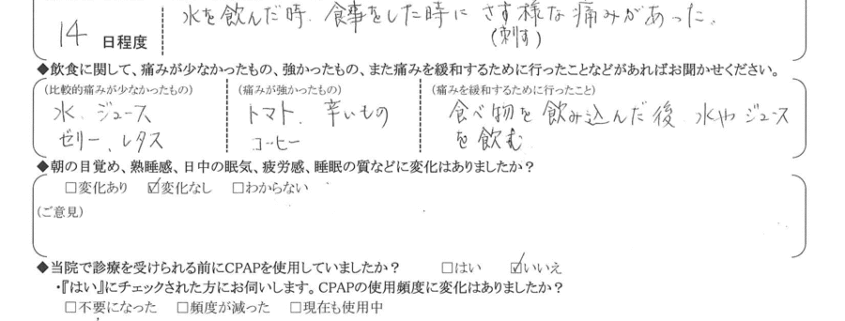 水を飲んだ時、食事をした時に さす様な痛みがあった。
(刺す)
14 日程度
◆飲食に関して、痛みが少なかったもの、強かったもの、また痛みを緩和するために行ったことなどがあればお聞かせください。
(比較的痛みが少なかったもの)
水、ジュース
ゼリー、レタス
(痛みが強かったもの)
トマト、辛いもの
コーヒー
(痛みを緩和するために行ったこと)
食べ物を飲み込んだ後 水やジュース
を飲む
◆朝の目覚め、熟睡感、日中の眠気、疲労感、睡眠の質などに変化はありましたか？
□変化あり ☑変化なし □わからない
(ご意見)
◆当院で診療を受けられる前にCPAPを使用していましたか？ □はい ☑いいえ
・『はい』にチェックされた方にお伺いします。CPAPの使用頻度に変化はありましたか？
□不要になった □頻度が減った □現在も使用中